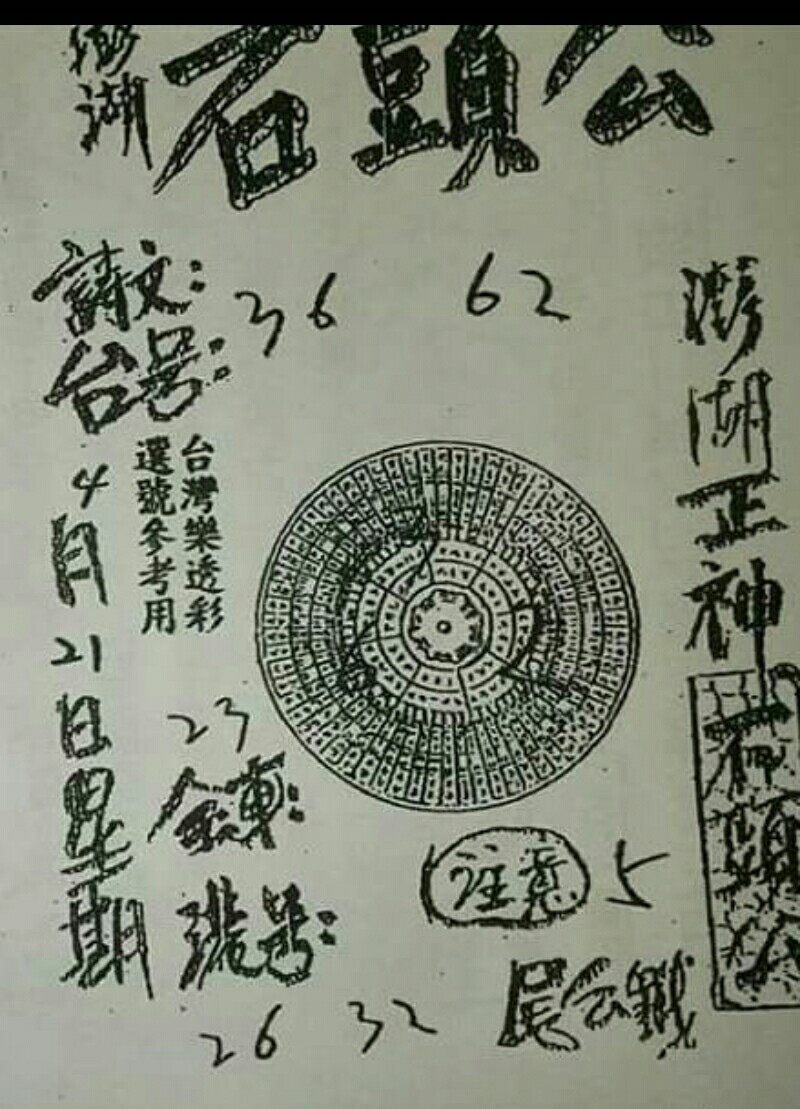 澎湖
石頭公
詩文：
36 62
台号：
台灣樂透彩
選號參考用
4月21日星期
23
注意 5
26 32
澎湖正神
石頭公